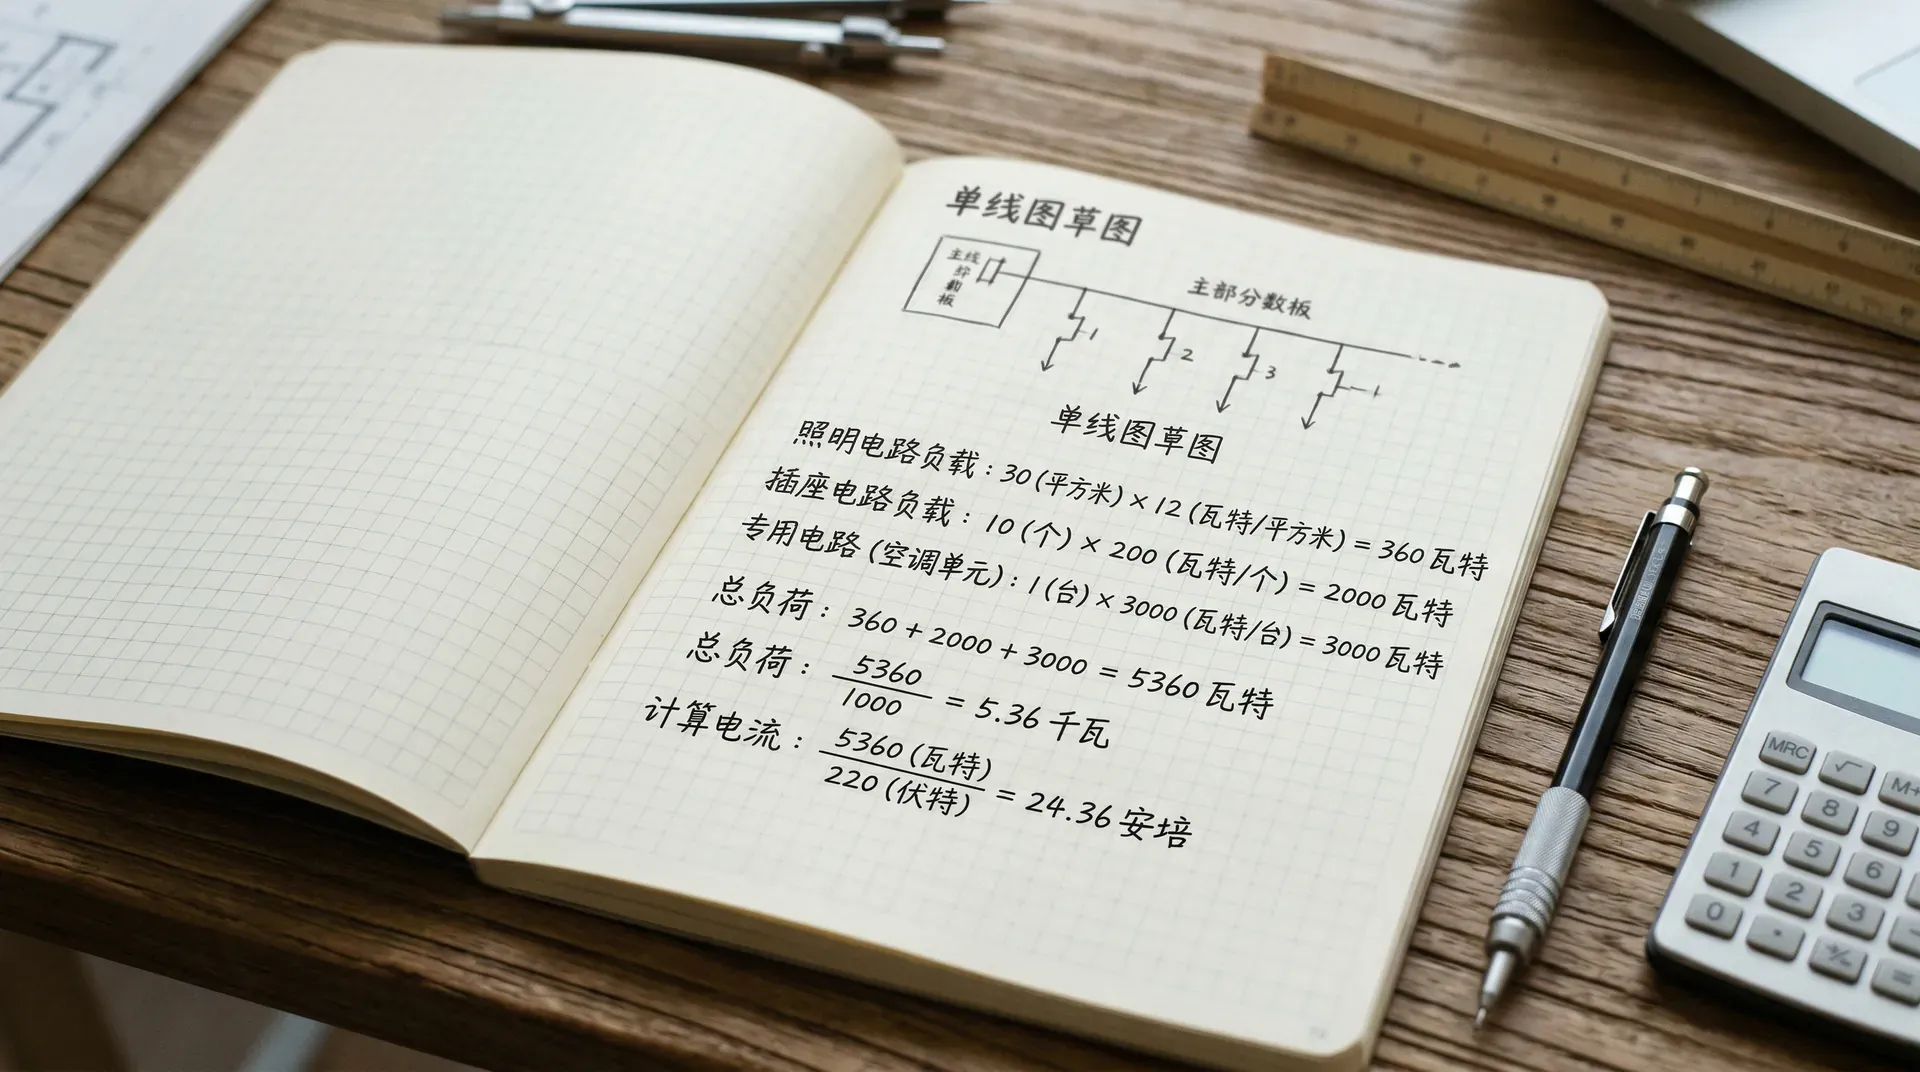 单线图草图
主线
板
主部分数板
1
2
3
单线图草图
照明电路负载：30 (平方米) × 12 (瓦特/平方米) = 360 瓦特
插座电路负载：10 (个) × 200 (瓦特/个) = 2000 瓦特
专用电路 (空调单元)：1 (台) × 3000 (瓦特/台) = 3000 瓦特
总负荷：360 + 2000 + 3000 = 5360 瓦特
总负荷：5360/1000 = 5.36 千瓦
计算电流：5360 (瓦特)/220 (伏特) = 24.36 安培
MRC √ M+
7 8 9
4 5 6
1 2 3
0 . =